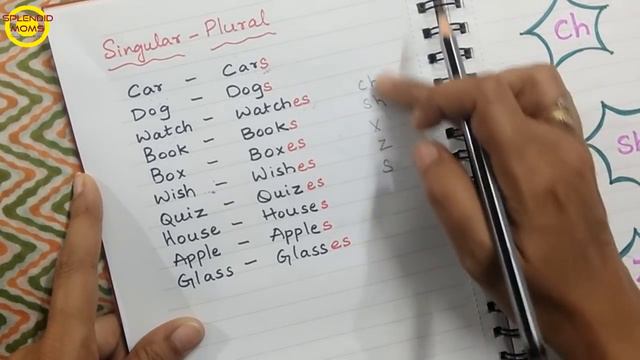 SPLENDID
MOMS
Singular - Plural
Car - Cars
Dog - Dogs
Watch - Watches
Book - Books
Box - Boxes
Wish - Wishes
Quiz - Quizes
House - Houses
Apple - Apples
Glass - Glasses
ch
sh
x
z
s
Ch
Sh